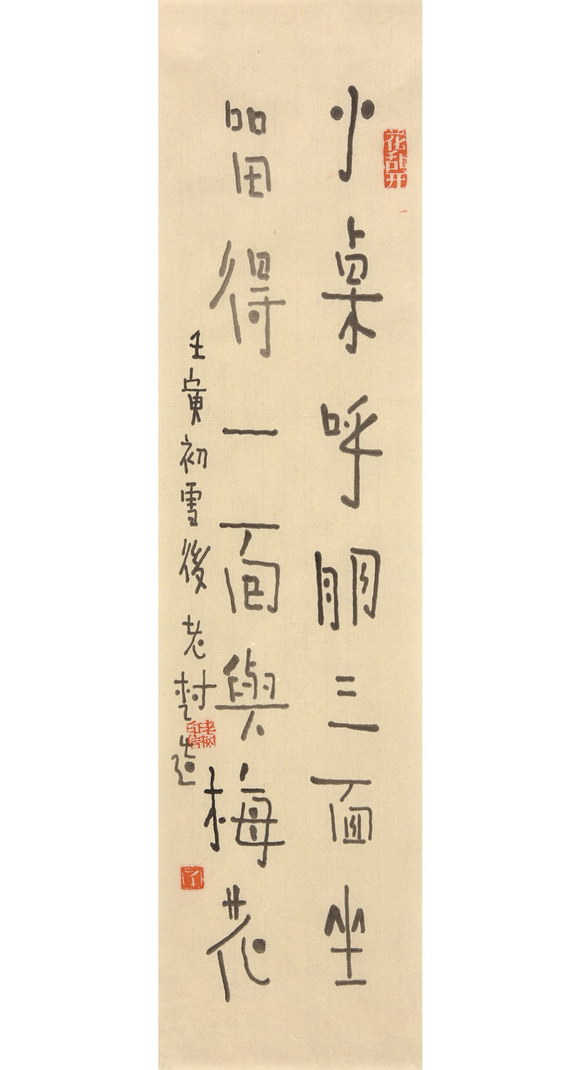 花乱开
小桌呼朋三面坐
留得一面與梅花
壬寅初雪後 老
了